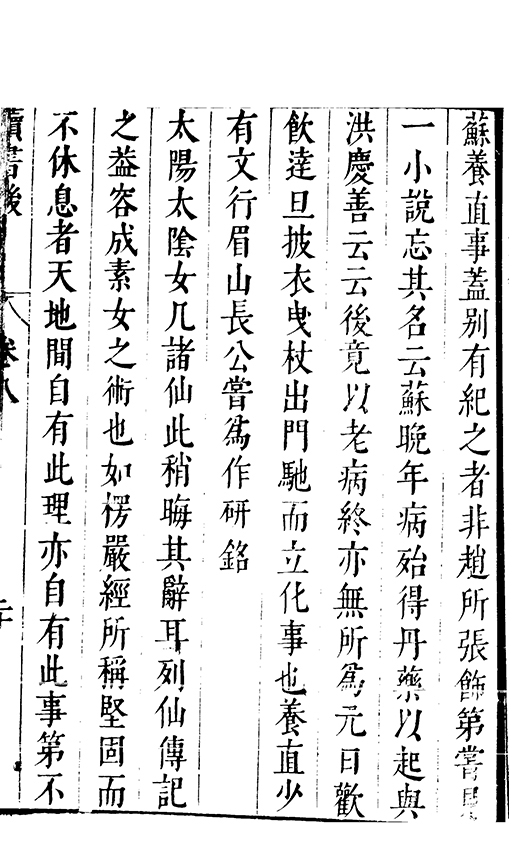 蘇養直事蓋别有紀之者非趙所張飾第嘗見
一小說忘其名云蘇晚年病殆得丹藥以起與
洪慶善云云後竟以老病終亦無所爲元日歡
飲達旦披衣曳杖出門馳而立化事也養直少
有文行眉山長公嘗爲作研銘
太陽太陰女几諸仙此稍晦其辭耳列仙傳記
之葢容成素女之術也如楞嚴經所稱堅固而
不休息者天地間自有此理亦自有此事第不
讀書後
卷八